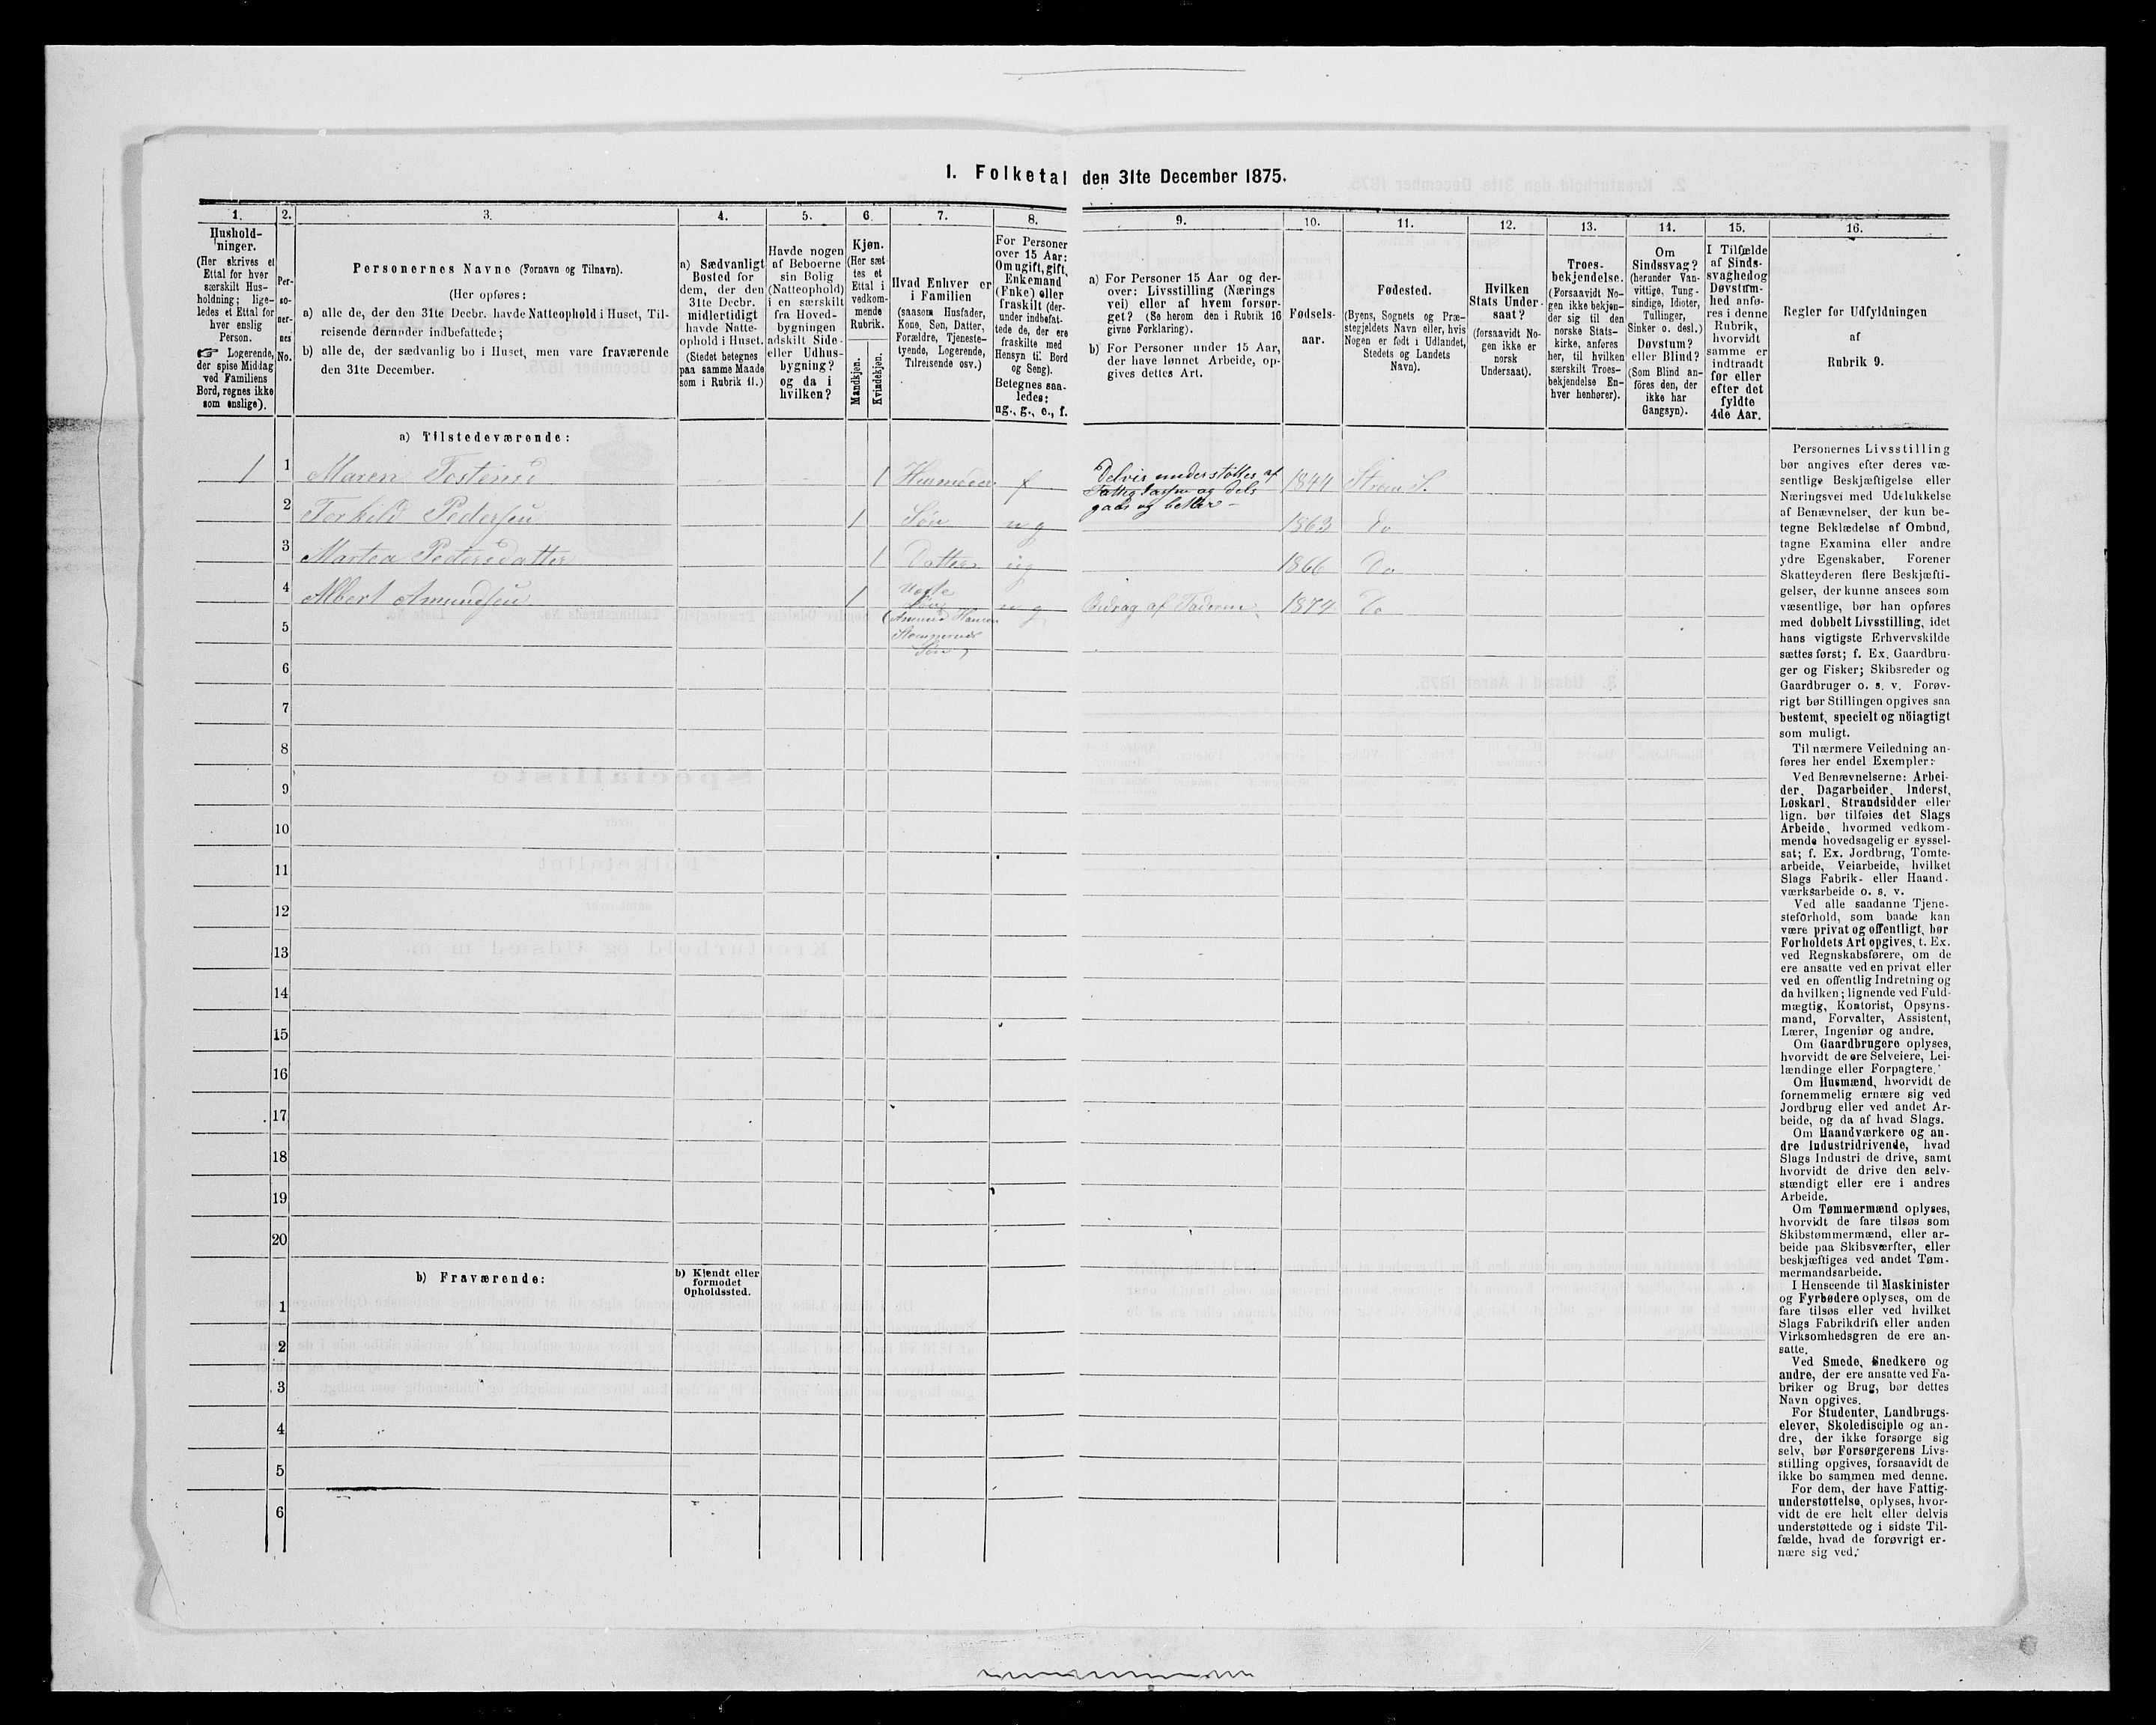 1. Folketal den 31te December 1875.
1.
Hushold-
ninger.
(Her skrives et
Ettal for hver
særskilt Hus-
holdning; lige-
ledes et Ettal for
hver enslig
Person.
☞ Logerende,
der spise Middag
ved Familiens
Bord, regnes ikke
som enslige).
2.
Per-
so-
ner-
nes
No.
3.
Personernes Navne (Fornavn og Tilnavn).
(Her opføres:
a) alle de, der den 31te Decbr. havde Natteophold i Huset, Til-
reisende derunder indbefattede;
b) alle de, der sædvanlig bo i Huset, men vare fraværende
den 31te December.
4.
a) Sædvanligt
Bosted for
dem, der den
31te Decbr.
midlertidigt
havde Natte-
ophold i Huset.
(Stedet betegnes
paa samme Maade
som i Rubrik 11.)
5.
Havde nogen
af Beboerne
sin Bolig
(Natteophold)
i en særskilt
fra Hoved-
bygningen
adskilt Side-
eller Udhus-
bygning?
og da i
hvilken?
6.
Kjøn.
(Her sæt-
tes et
Ettal i
vedkom-
mende
Rubrik.
Mandkjøn.
Kvindekjøn.
7.
Hvad Enhver er
i Familien
(saasom Husfader,
Kone, Søn, Datter,
Forældre, Tjeneste-
tyende, Logerende,
Tilreisende osv.)
8.
For Personer
over 15 Aar:
Om ugift, gift,
Enkemand
(Enke) eller
fraskilt (der-
under indbefat-
tede de, der ere
fraskilte med
Hensyn til Bord
og Seng).
Betegnes saa-
ledes:
ug., g., e., f.
9.
a) For Personer 15 Aar og der-
over: Livsstilling (Nærings
vei) eller af hvem forsør-
get? (Se herom den i Rubrik 16
givne Forklaring).
b) For Personer under 15 Aar,
der have lønnet Arbeide, op-
gives dettes Art.
10.
Fødsels-
aar.
11.
Fødested.
(Byens, Sognets og Præ-
stegjeldets Navn eller, hvis
Nogen er født i Udlandet,
Stedets og Landets
Navn).
12.
Hvilken
Stats Under-
saat?
(forsaavidt No-
gen ikke er
norsk
Undersaat).
13.
Troes-
bekjendelse.
(Forsaavidt No-
gen ikke bekjen-
der sig til den
norske Stats-
kirke, anføres
her, til hvilken
særskilt Troes-
bekjendelse En-
hver henhører).
14.
Om
Sindssvag?
(herunder Van-
vittige, Tung-
sindige, Idioter,
Tullinger,
Sinker o. desl.)
Døvstum?
eller Blind?
(Som Blind an-
føres den, der
ikke har
Gangsyn).
15.
I Tilfælde
af Sinds-
svaghed og
Døvstum-
hed anfø-
res i denne
Rubrik,
hvorvidt
samme er
indtraadt
før eller
efter det
fyldte
4de Aar.
16.
Regler for Udfyldningen
af
Rubrik 9.
a) Tilstedeværende:
1 1 Maren Tostensd 1 Husmoder f Delvis understøttes af
Fattig Cassen og dels 1844 Strøm S.
2 Torkild Pedersen 1 Søn ug 1863 Do
3 Martea Pedersdatter 1 Datter ug 1866 Do
4 Albert Amundsen 1 Søn ug Bidrag af Faderen 1874 Do
5 (Amund Hansen
Søn)
6
7
8
9
10
11
12
13
14
15
16
17
18
19
20
b) Fraværende:
b) Kjendt eller
formodet
Opholdssted.
1
2
3
4
5
6
Personernes Livsstilling
bør angives efter deres væ-
sentlige Beskjæftigelse eller
Næringsvei med Udelukkelse
af Benævnelser, der kun be-
tegne Beklædelse af Ombud,
tagne Examina eller andre
ydre Egenskaber. Forener
Skatteyderen flere Beskjæfti-
gelser, der kunne ansees som
væsentlige, bør han opføres
med dobbelt Livsstilling, idet
hans vigtigste Erhvervskilde
sættes først; f. Ex. Gaardbru-
ger og Fisker; Skibsreder og
Gaardbruger o. s. v. Forøv-
rigt bør Stillingen opgives saa
bestemt, specielt og nöiagtigt
som muligt.
Til nærmere Veiledning an-
føres her endel Exempler:
Ved Benævnelserne: Arbei-
der, Dagarbeider, Inderst,
Løskarl, Strandsidder eller
lign. bør tilføies det Slags
Arbeide, hvormed vedkom-
mende hovedsagelig er syssel-
sat; f. Ex. Jordbrug, Tomte-
arbeide, Veiarbeide, hvilket
Slags Fabrik- eller Haand-
værksarbeide o. s. v.
Ved alle saadanne Tjene-
steforhold, som baade kan
være privat og offentligt, bør
Forholdets Art opgives, t. Ex.
ved Regnskabsførere, om de
ere ansatte ved en privat eller
ved en offentlig Indretning og
da hvilken; lignende ved Fuld-
mægtig, Kontorist, Opsyns-
mand, Forvalter, Assistent,
Lærer, Ingeniør og andre.
Om Gaardbrugere oplyses,
hvorvidt de ere Selveiere, Lei-
lændinge eller Forpagtere.
Om Husmænd, hvorvidt de
fornemmelig ernære sig ved
Jordbrug eller ved andet Ar-
beide, og da af hvad Slags.
Om Haandværkere og an-
dre Industridrivende, hvad
Slags Industri de drive, samt
hvorvidt de drive den selv-
stændigt eller ere i andres
Arbeide.
Om Tømmermænd oplyses,
hvorvidt de fare tilsøs som
Skibstømmermænd, eller ar-
beide paa Skibsværfter, eller
beskjæftiges ved andet Tøm-
mermandsarbeide.
I Henseende til Maskinister
og Fyrbødere oplyses, om de
fare tilsøs eller ved hvilket
Slags Fabrikdrift eller anden
Virksomhedsgren de ere an-
satte.
Ved Smede, Snedkere og
andre, der ere ansatte ved Fa-
briker og Brug, bør dettes
Navn opgives.
For Studenter, Landbrugs-
elever, Skoledisciple og an-
dre, der ikke forsørge sig
selv, bør Forsørgerens Livs-
stilling opgives, forsaavidt de
ikke bo sammen med denne.
For dem, der have Fattig-
understøttelse, oplyses, hvor-
vidt de ere helt eller delvis
understøttede og i sidste Til-
fælde, hvad de forøvrigt er-
nære sig ved.